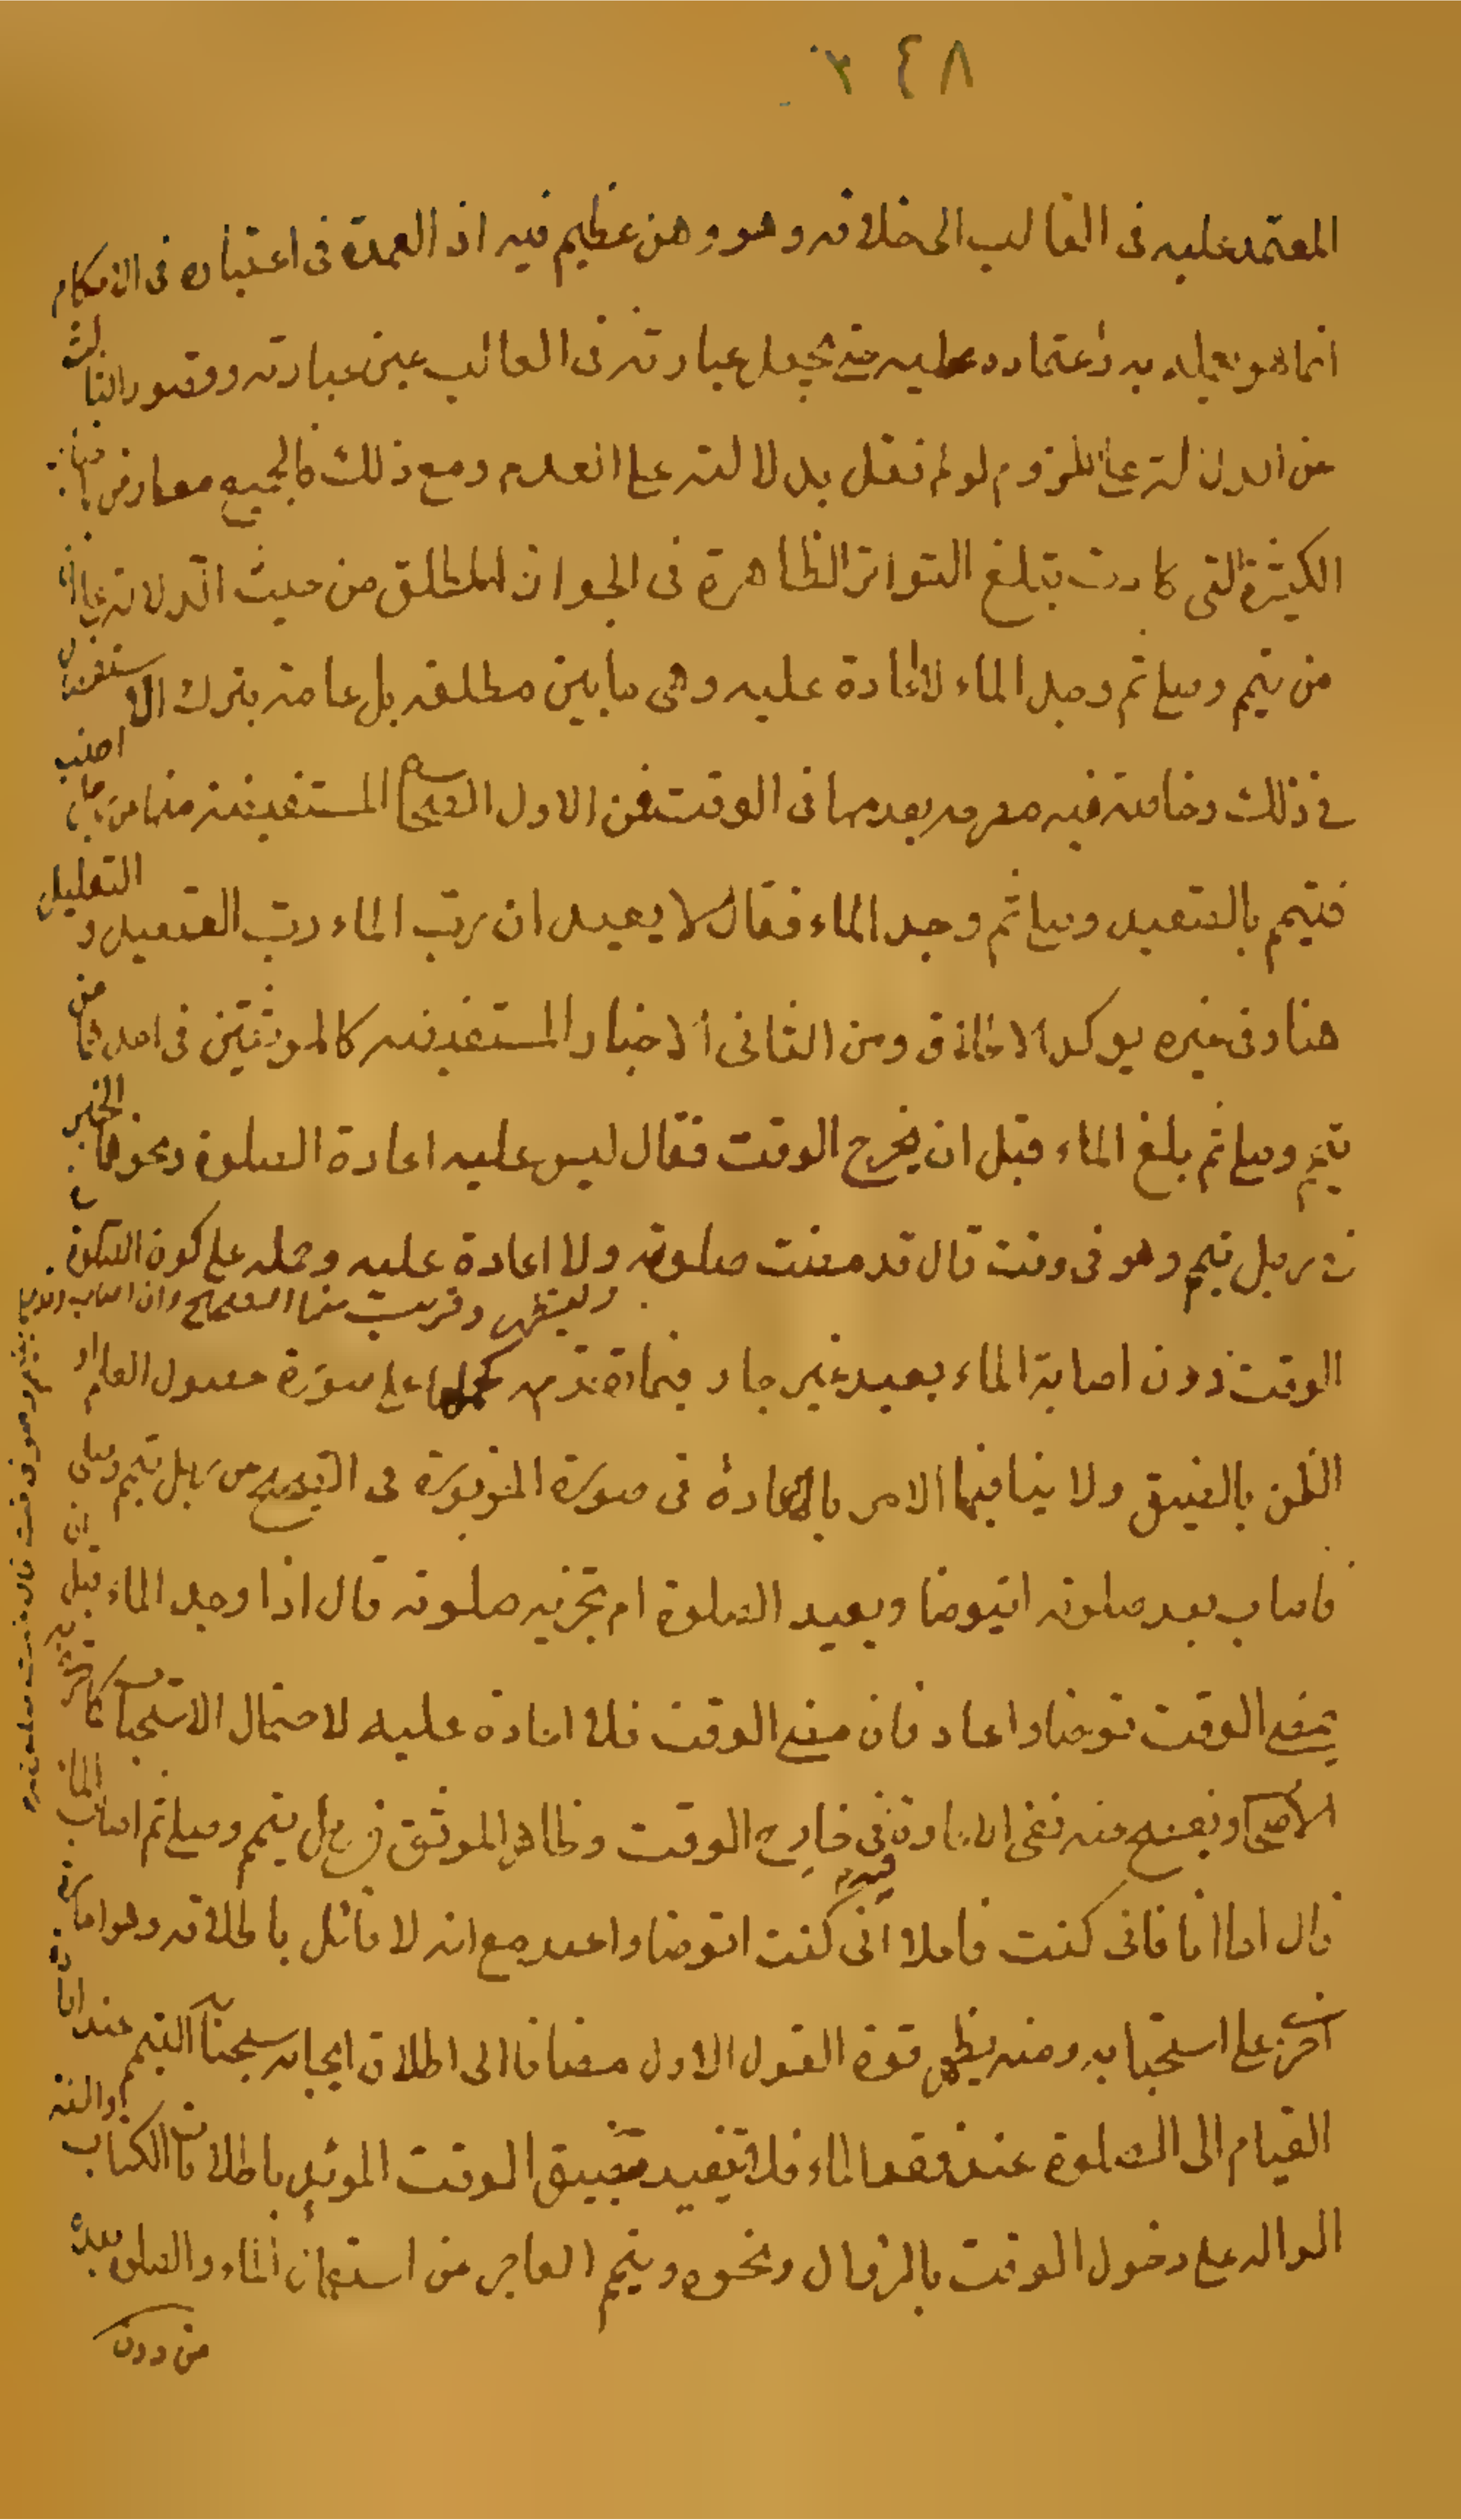 ٣٤٨
المعتمد عليه فى الغالب الى خلافه وهو وهن عظيم فيه اذ العمدة فى اعتباره فى الاحكام
انما هو عمله به واعتماده عليه حتى يجعل عبارته فى الغالب عين عبارته وقصور الثالث
عن الدلالة على اللزوم لو لم نقل بدلالته على العدم ومع ذلك فالجميع معارض
الكثيرة التى كادت تبلغ التواتر الظاهرة فى الجواز المطلق من حيث الدلالة على ان
من تيمم وصلى ثم وجد الماء لا اعادة عليه وهى ما بين مطلقه بل عامه بترك الاستفصال
فى ذلك وخاصة فيه مصرحه بعدمها فى الوقت فمن الاول الصحاح المستفيضه منها عن رجل اجنب
فتيمم بالصعيد وصلى ثم وجد الماء فقال لا يعيد ان رب الماء رب الصعيد و التعليل
هنا وفى غيره يوكد الاطلاق ومن الثانى الاخبار المستفيضه كالموثقين فى احدهما عن
تيمم وصلى ثم بلغ الماء قبل ان يخرج الوقت فقال ليس عليه اعادة الصلوة ونحوهما الخبر
فى رجل تيمم وهو فى وقت قال قد مضت صلوته ولا اعادة عليه وحمله على كون التيمم
الوقت دون اصابة الماء بعيد غير جار فيما تقدمه كحملها على صورة حصول العلم او
الظن بالضيق ولا ينافيها الامر بالاعادة فى صورة المزبورة فى الصحيح عن رجل تيمم وصلى
فاصاب بعد صلوته ايتوضا ويعيد الصلوة ام تجزيه صلوته قال اذا وجد الماء قبل
يمضى الوقت توضا واعاد فان مضى الوقت فلا اعادة عليه لاحتمال الاستحباب
الاصحاب ويفصح عنه نفى الاعادة فى خارج الوقت وظاهر الموثق فى رجل تيمم وصلى ثم اصاب الماء
قال اما انا فانى كنت فاعلا انى كنت اتوضا واعيد مع انه لا قائل باطلاقه
اخرى على استحبابه ومنه يظهر قوة القول الاول مضافا الى اطلاق ايجابه سبحانه التيمم عند
القيام الى الصلوة عند فقد الماء فلا تقيد بضيق الوقت المويد باطلاقات الكتاب والسنه
الدالة على دخول الوقت بالزوال ونحوه وتيمم العاجز عن استعمال الماء والصلوة بعده
من دون